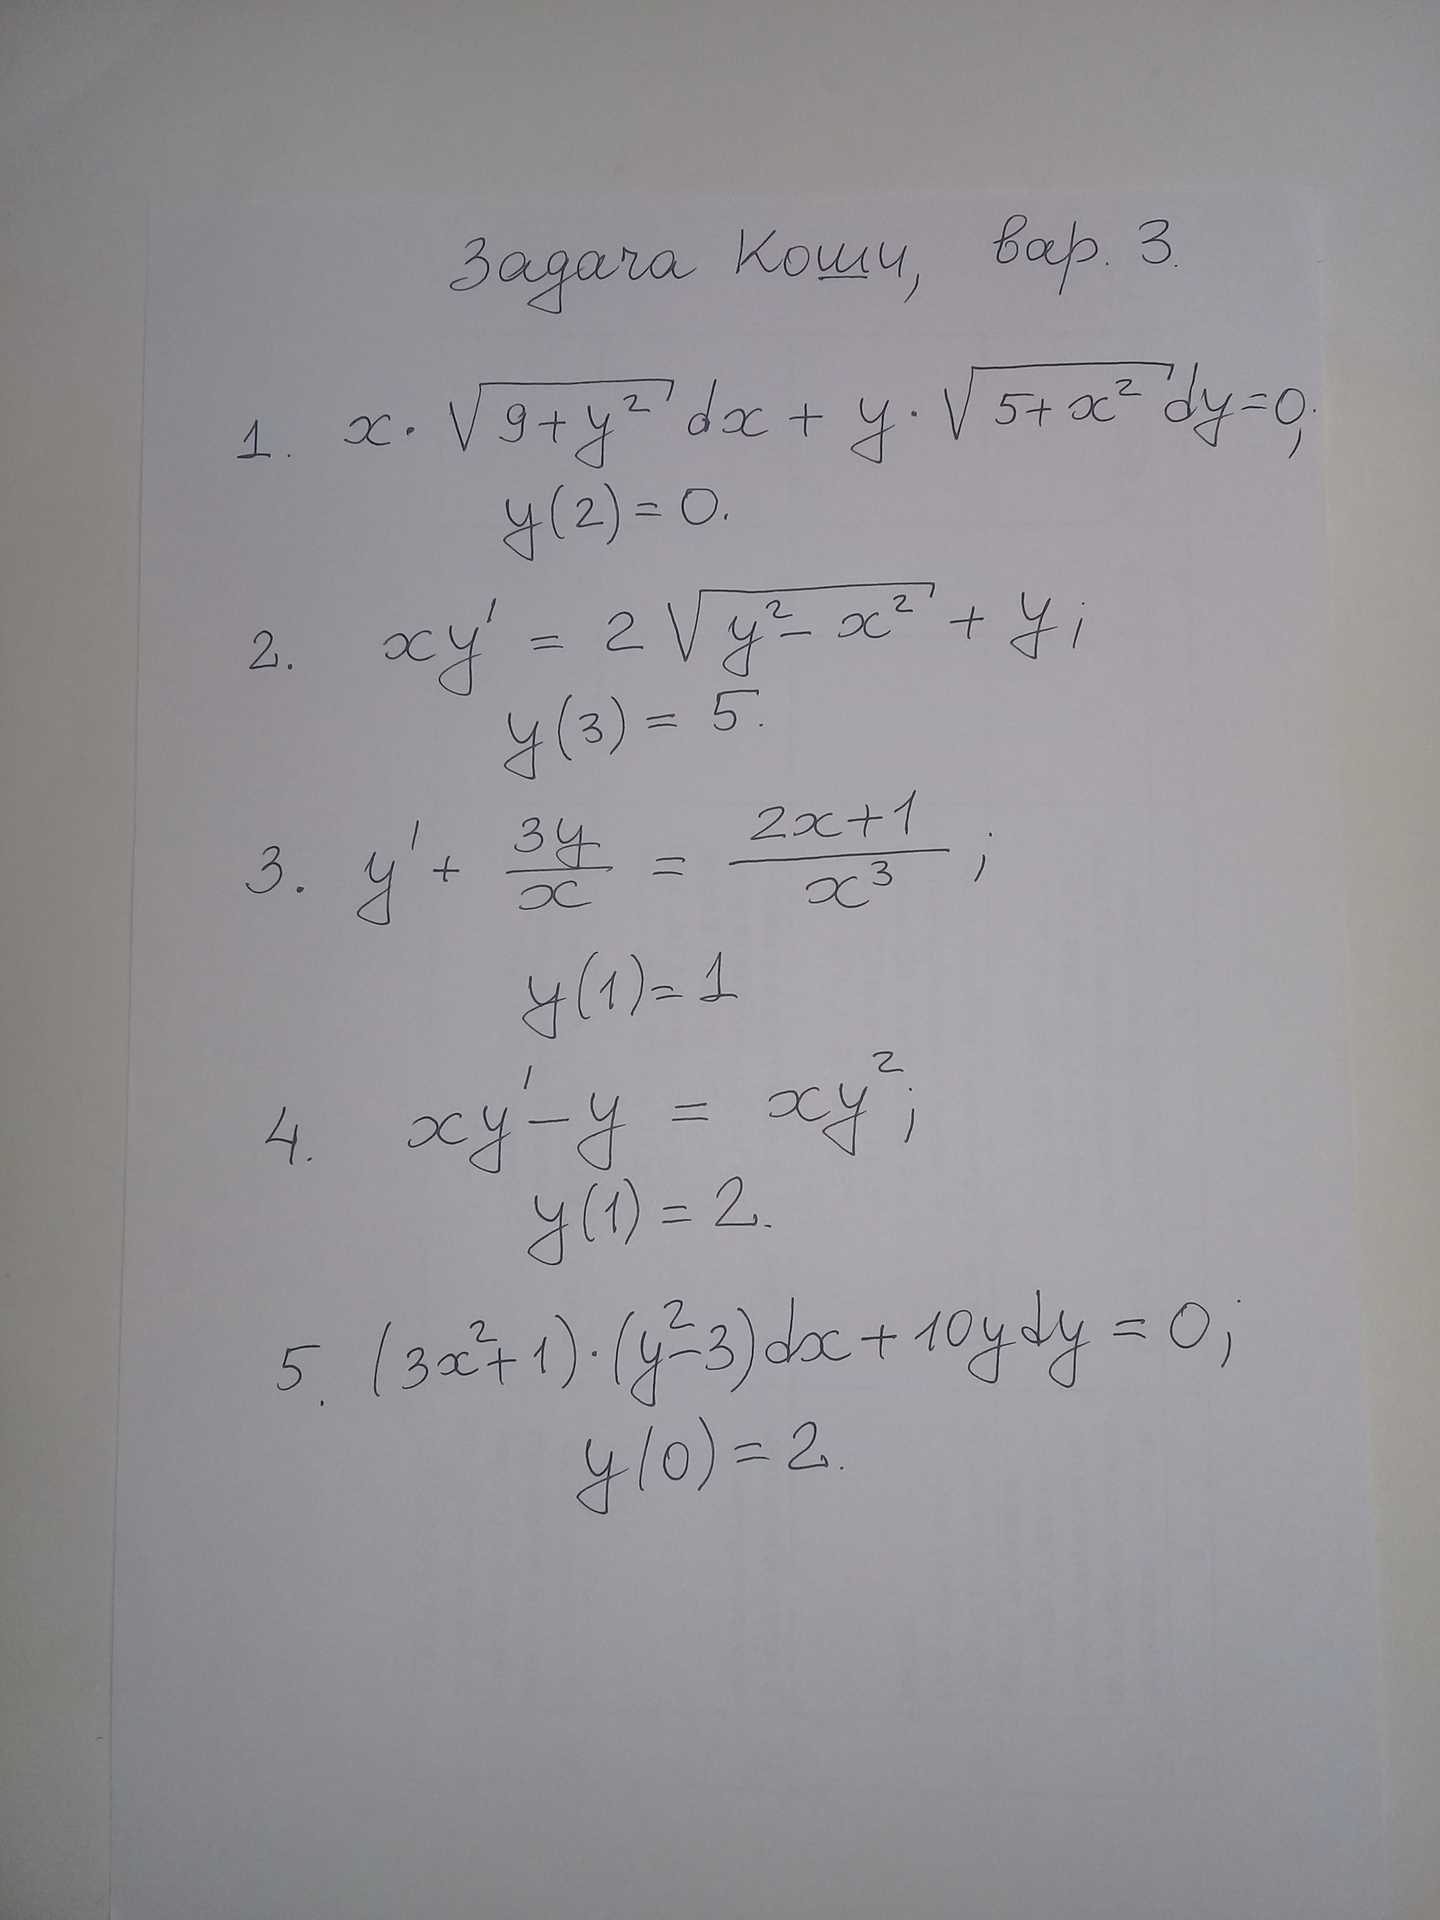 Задача Коши, вар. 3.
1. x·√(9+y²) dx + y·√(5+x²) dy=0;
y(2)=0.
2. xy' = 2√(y²-x²) + y;
y(3)=5.
3. y'+ 3y/x = (2x+1)/x³;
y(1)=1
4. xy'-y = xy²;
y(1)=2.
5. (3x²+1)·(y²-3)dx+10ydy=0;
y(0)=2.